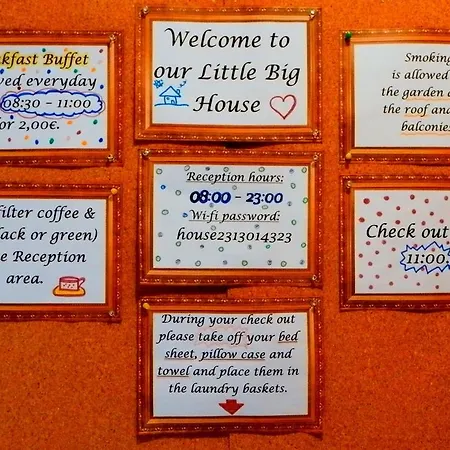 Welcome to
our Little Big
House
kfast Buffet
ved everyday
08:30 - 11:00
or 2,00€.
Smoking
is allowed
the garden
the roof and
balconies
Reception hours:
08:00 - 23:00
Wi-fi password:
house2313014323
filter coffee &
lack or green)
e Reception
area.
Check out
11:00
During your check out
please take off your bed
sheet, pillow case and
towel and place them in
the laundry baskets.